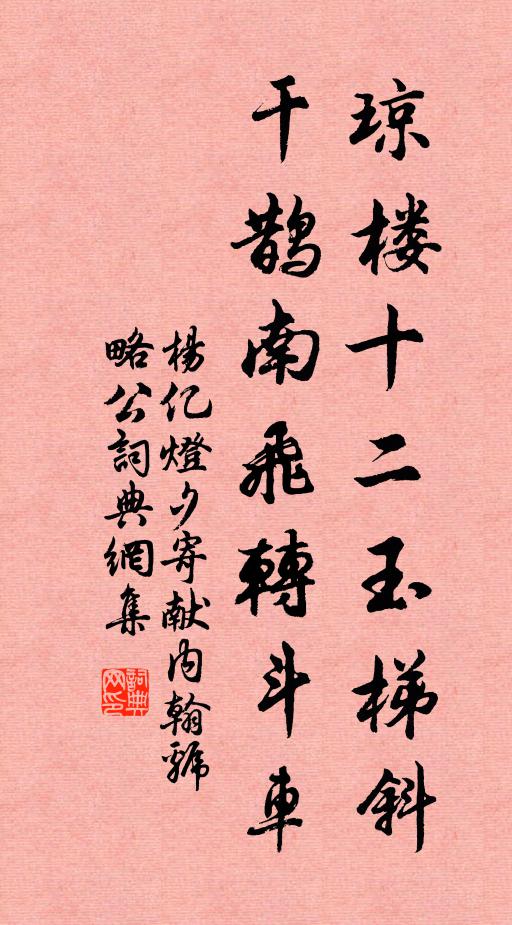 琼楼十二玉梯斜
干鹊南飛轉斗車
楊亿燈夕寄献内翰虢
略公詞典網集
詞典网印